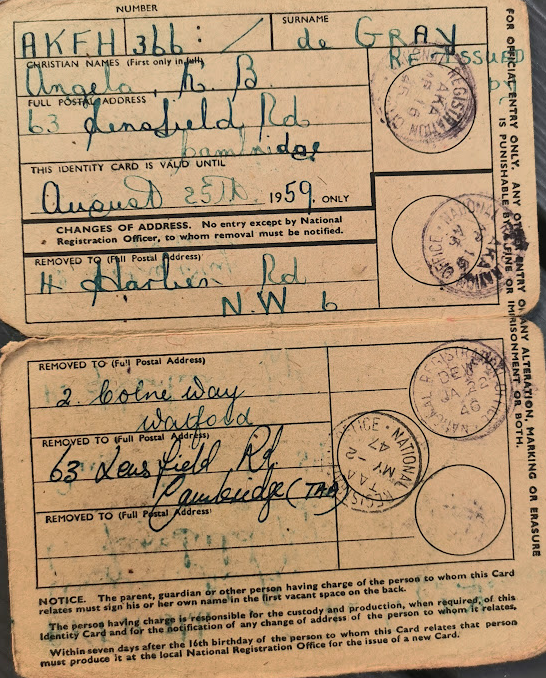 NUMBER
SURNAME
AKFH 366: / de GRAY
RE-ISSUED
CHRISTIAN NAMES (First only in full)
Angela, B.
FULL POSTAL ADDRESS
63 Lensfield Rd
Cambridge
THIS IDENTITY CARD IS VALID UNTIL
August 25TH 1959. ONLY
CHANGES OF ADDRESS. No entry except by National
Registration Officer, to whom removal must be notified.
REMOVED TO (Full Postal Address)
Rd
N.W 6
REMOVED TO (Full Postal Address)
2. Colne Way
Watford
REMOVED TO (Full Postal Address)
63 Lensfield Rd
Cambridge (TAA)
REMOVED TO (Full Postal Address)
NOTICE. The parent, guardian or other person having charge of the person to whom this Card
relates must sign his or her own name in the first vacant space on the back.
The person having charge is responsible for the custody and production, when required, of this
Identity Card and for the notification of any change of address of the person to whom it relates,
Within seven days after the 16th birthday of the person to whom this Card relates that person
must produce it at the local National Registration Office for the issue of a new Card.
FOR OFFICIAL ENTRY ONLY. ANY OTHER ENTRY OR ANY ALTERATION, MARKING OR ERASURE
IS PUNISHABLE BY A FINE OR IMPRISONMENT, OR BOTH.
REGISTRATION
AKA
NATIONAL
OFFICE
AKA
NATIONAL REGISTRATION OFFICE
46
NATIONAL
TAA
MY 2
47